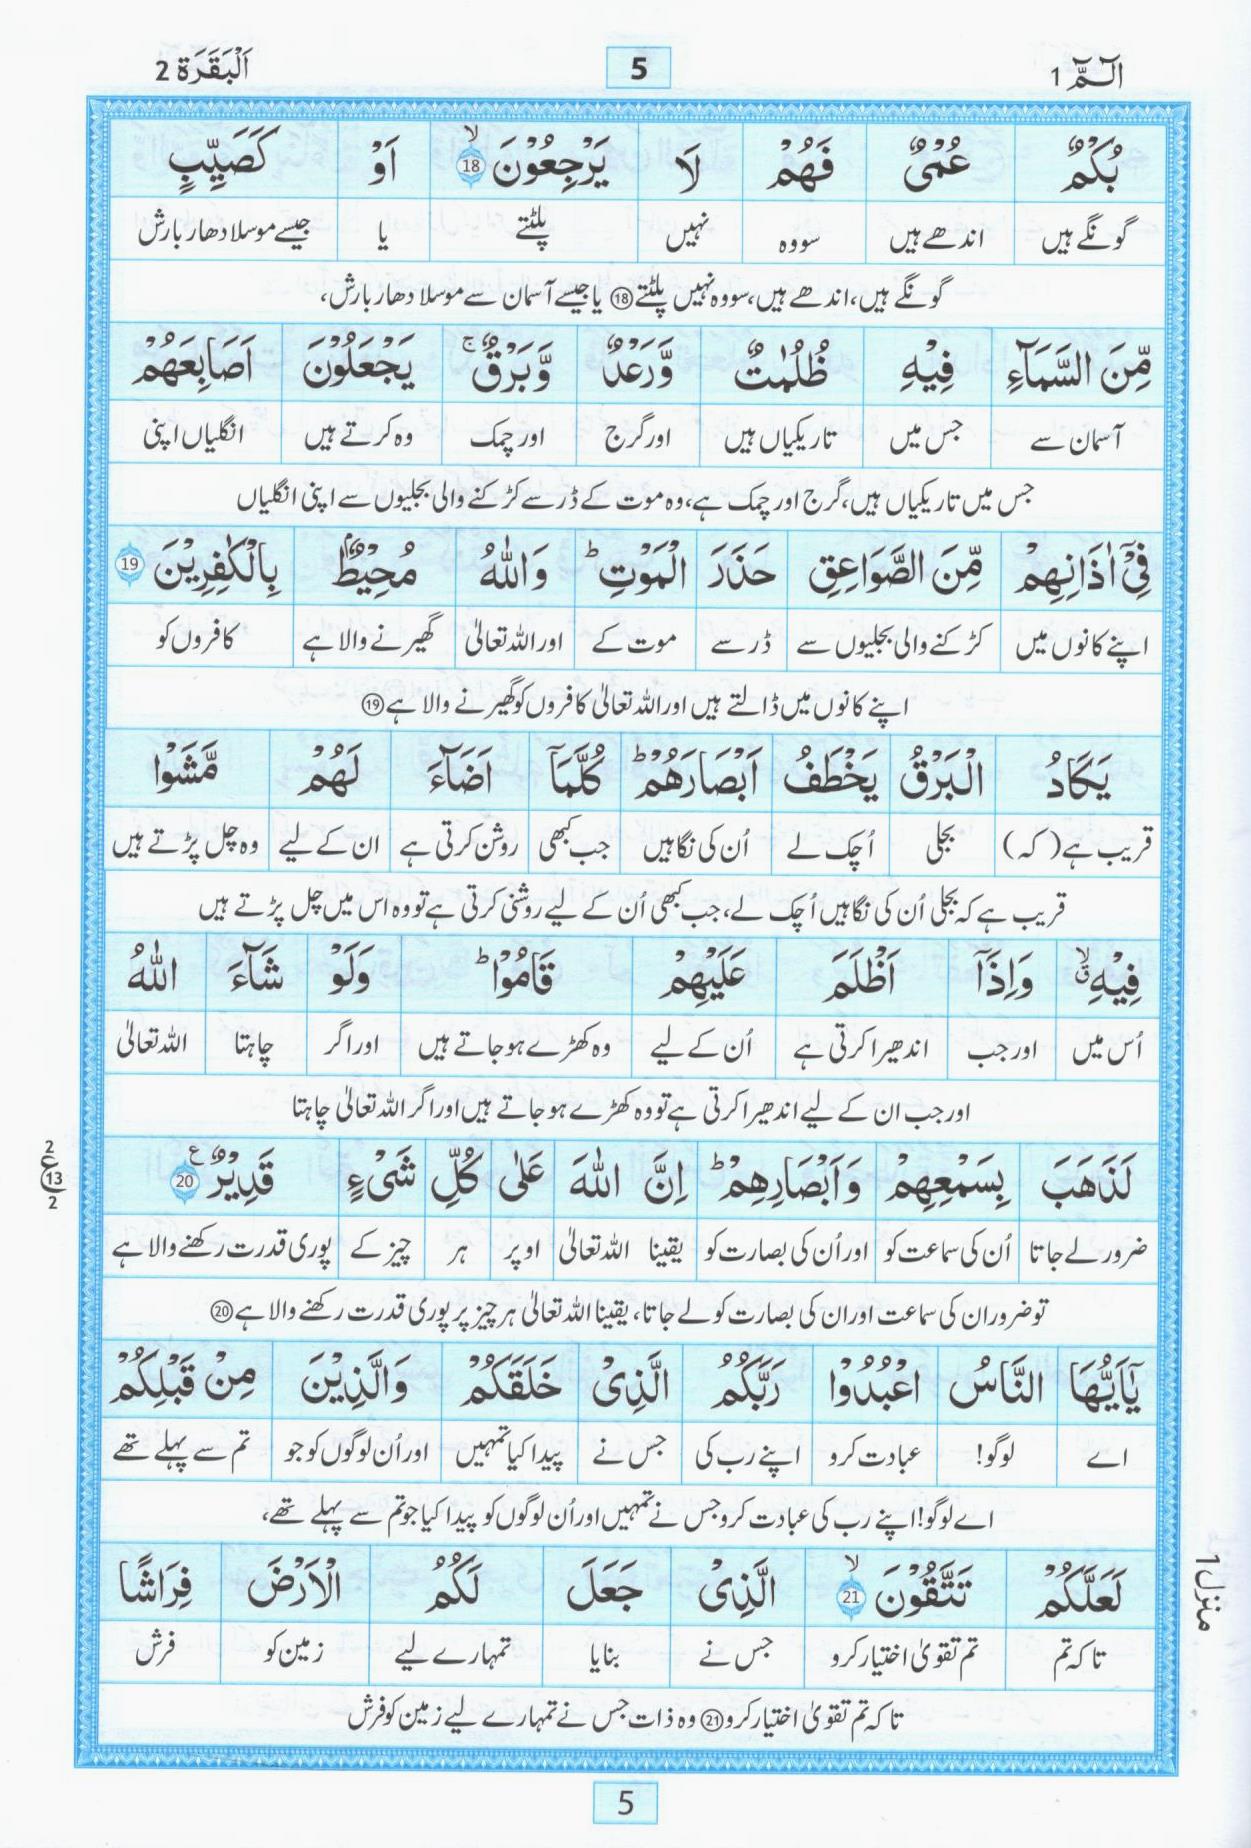 الٓمّٓ 1
5
اَلْبَقَرَة 2
بُكْمٌ عُمْیٌ فَهُمْ لَا یَرْجِعُوْنَ 18 اَوْ كَصَیِّبٍ
گونگے ہیں اندھے ہیں سو وہ نہیں پلٹتے یا جیسے موسلا دھار بارش
گونگے ہیں، اندھے ہیں، سو وہ نہیں پلٹتے 18 یا جیسے آسمان سے موسلا دھار بارش،
مِّنَ السَّمَآءِ فِیْهِ ظُلُمٰتٌ وَّرَعْدٌ وَّبَرْقٌ ۚ یَجْعَلُوْنَ اَصَابِعَهُمْ
آسمان سے جس میں تاریکیاں ہیں اور گرج اور چمک وہ کرتے ہیں انگلیاں اپنی
جس میں تاریکیاں ہیں، گرج اور چمک ہے، وہ موت کے ڈر سے کڑکنے والی بجلیوں سے اپنی انگلیاں
فِیْۤ اٰذَانِهِمْ مِّنَ الصَّوَاعِقِ حَذَرَ الْمَوْتِ ؕ وَاللّٰهُ مُحِیْطٌۢ بِالْكٰفِرِیْنَ 19
اپنے کانوں میں کڑکنے والی بجلیوں سے ڈر سے موت کے اور اللہ تعالیٰ گھیرنے والا ہے کافروں کو
اپنے کانوں میں ڈالتے ہیں اور اللہ تعالیٰ کافروں کو گھیرنے والا ہے 19
یَكَادُ الْبَرْقُ یَخْطَفُ اَبْصَارَهُمْ ؕ كُلَّمَاۤ اَضَآءَ لَهُمْ مَّشَوْا
قریب ہے (کہ) بجلی اُچک لے اُن کی نگاہیں جب کبھی روشن کرتی ہے ان کے لیے وہ چل پڑتے ہیں
قریب ہے کہ بجلی اُن کی نگاہیں اُچک لے، جب کبھی اُن کے لیے روشنی کرتی ہے تو وہ اس میں چل پڑتے ہیں
فِیْهِ ۙۗ وَاِذَاۤ اَظْلَمَ عَلَیْهِمْ قَامُوْا ؕ وَلَوْ شَآءَ اللّٰهُ
اُس میں اور جب اندھیرا کرتی ہے اُن کے لیے وہ کھڑے ہو جاتے ہیں اور اگر چاہتا اللہ تعالیٰ
اور جب ان کے لیے اندھیرا کرتی ہے تو وہ کھڑے ہو جاتے ہیں اور اگر اللہ تعالیٰ چاہتا
لَذَهَبَ بِسَمْعِهِمْ وَاَبْصَارِهِمْ ؕ اِنَّ اللّٰهَ عَلٰی كُلِّ شَیْءٍ قَدِیْرٌ 20 ع
2 ع 13 2
ضرور لے جاتا اُن کی سماعت کو اور اُن کی بصارت کو یقینا اللہ تعالیٰ اوپر ہر چیز کے پوری قدرت رکھنے والا ہے
تو ضرور ان کی سماعت اور ان کی بصارت کو لے جاتا، یقینا اللہ تعالیٰ ہر چیز پر پوری قدرت رکھنے والا ہے 20
یٰۤاَیُّهَا النَّاسُ اعْبُدُوْا رَبَّكُمُ الَّذِیْ خَلَقَكُمْ وَالَّذِیْنَ مِنْ قَبْلِكُمْ
اے لوگو! عبادت کرو اپنے رب کی جس نے پیدا کیا تمہیں اور اُن لوگوں کو جو تم سے پہلے تھے
اے لوگو! اپنے رب کی عبادت کرو جس نے تمہیں اور اُن لوگوں کو پیدا کیا جو تم سے پہلے تھے،
لَعَلَّكُمْ تَتَّقُوْنَ 21 الَّذِیْ جَعَلَ لَكُمُ الْاَرْضَ فِرَاشًا
تا کہ تم تم تقویٰ اختیار کرو جس نے بنایا تمہارے لیے زمین کو فرش
تا کہ تم تقویٰ اختیار کرو 21 وہ ذات جس نے تمہارے لیے زمین کو فرش
منزل 1
5